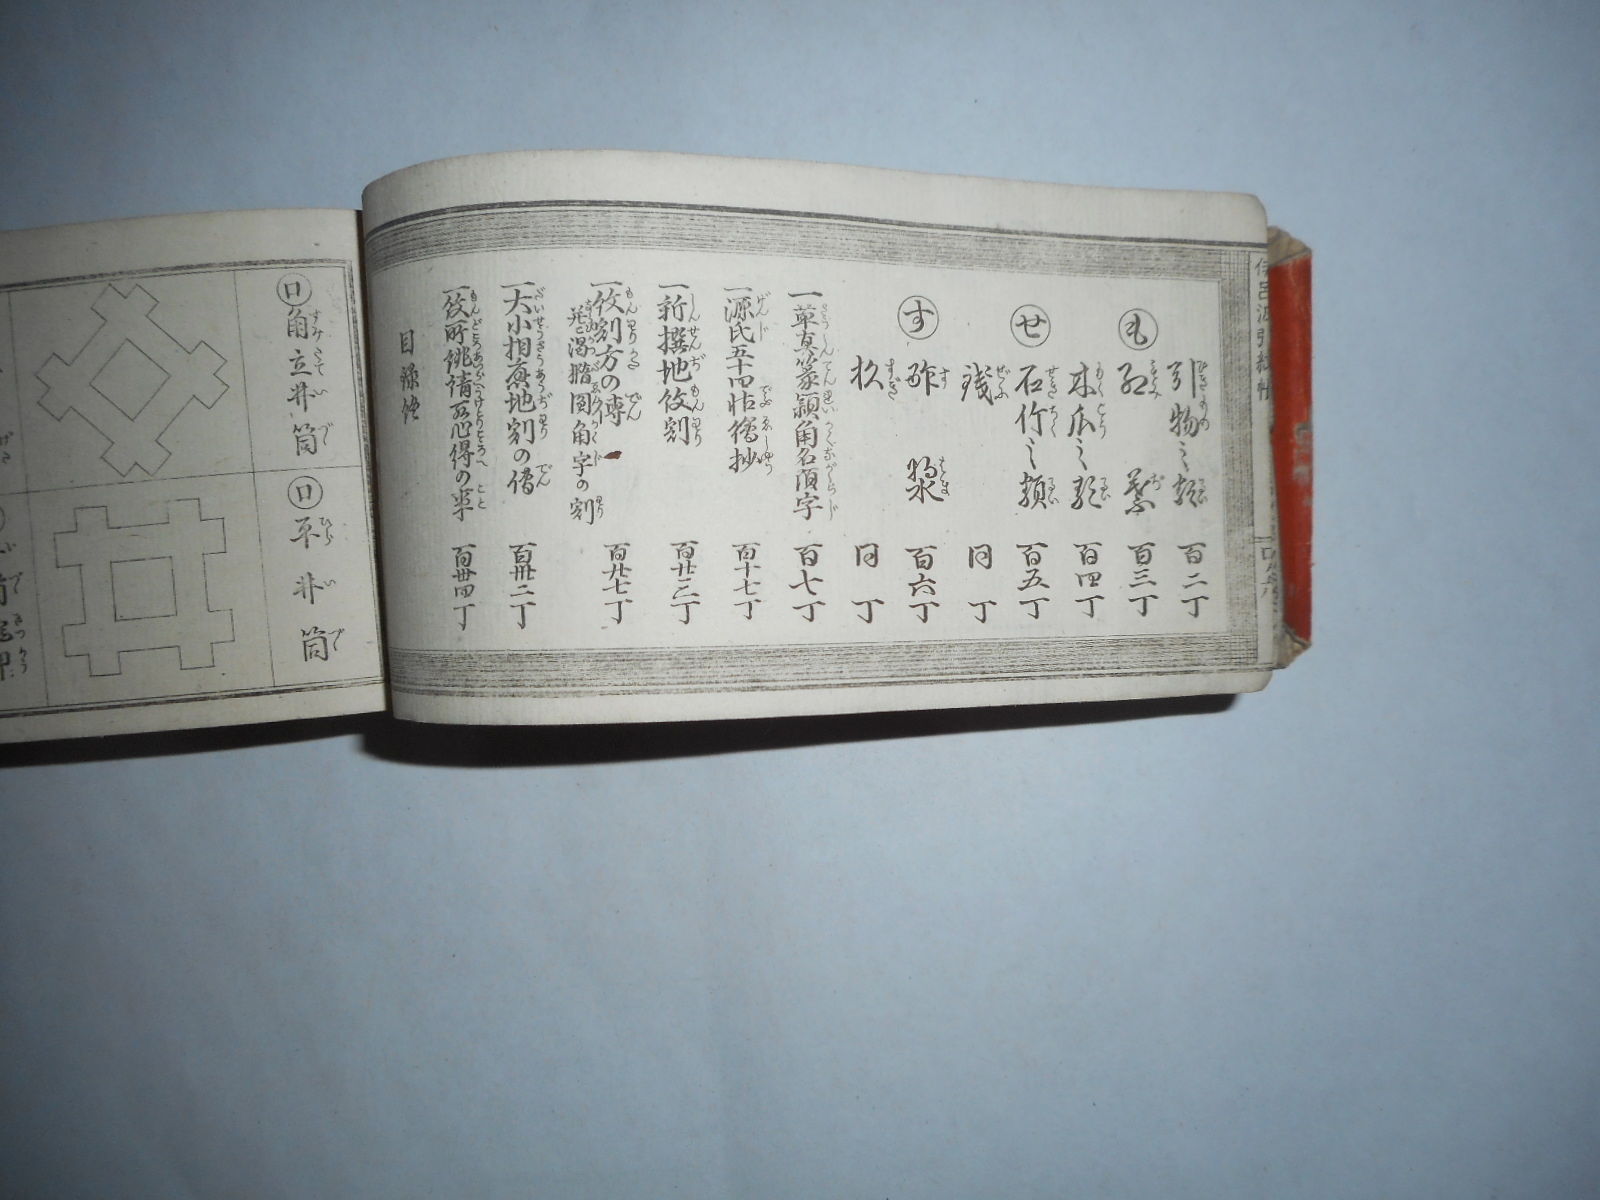 引物之類 百二丁
も 百三丁
木瓜之類 百四丁
せ 石竹之類 百五丁
銭 同 丁
す 酢漿 百六丁
杉 同 丁
一草真篆額角名頭字 百七丁
一源氏五十四帖繪抄 百十七丁
一新撰地紋割 百廿三丁
一紋割方の傳 百廿七丁
圓角字の割
一大小相應地割の傳 百卅二丁
一紋所誂請取心得の事 百卅四丁
目録終
ロ 角立井筒
ロ 平井筒